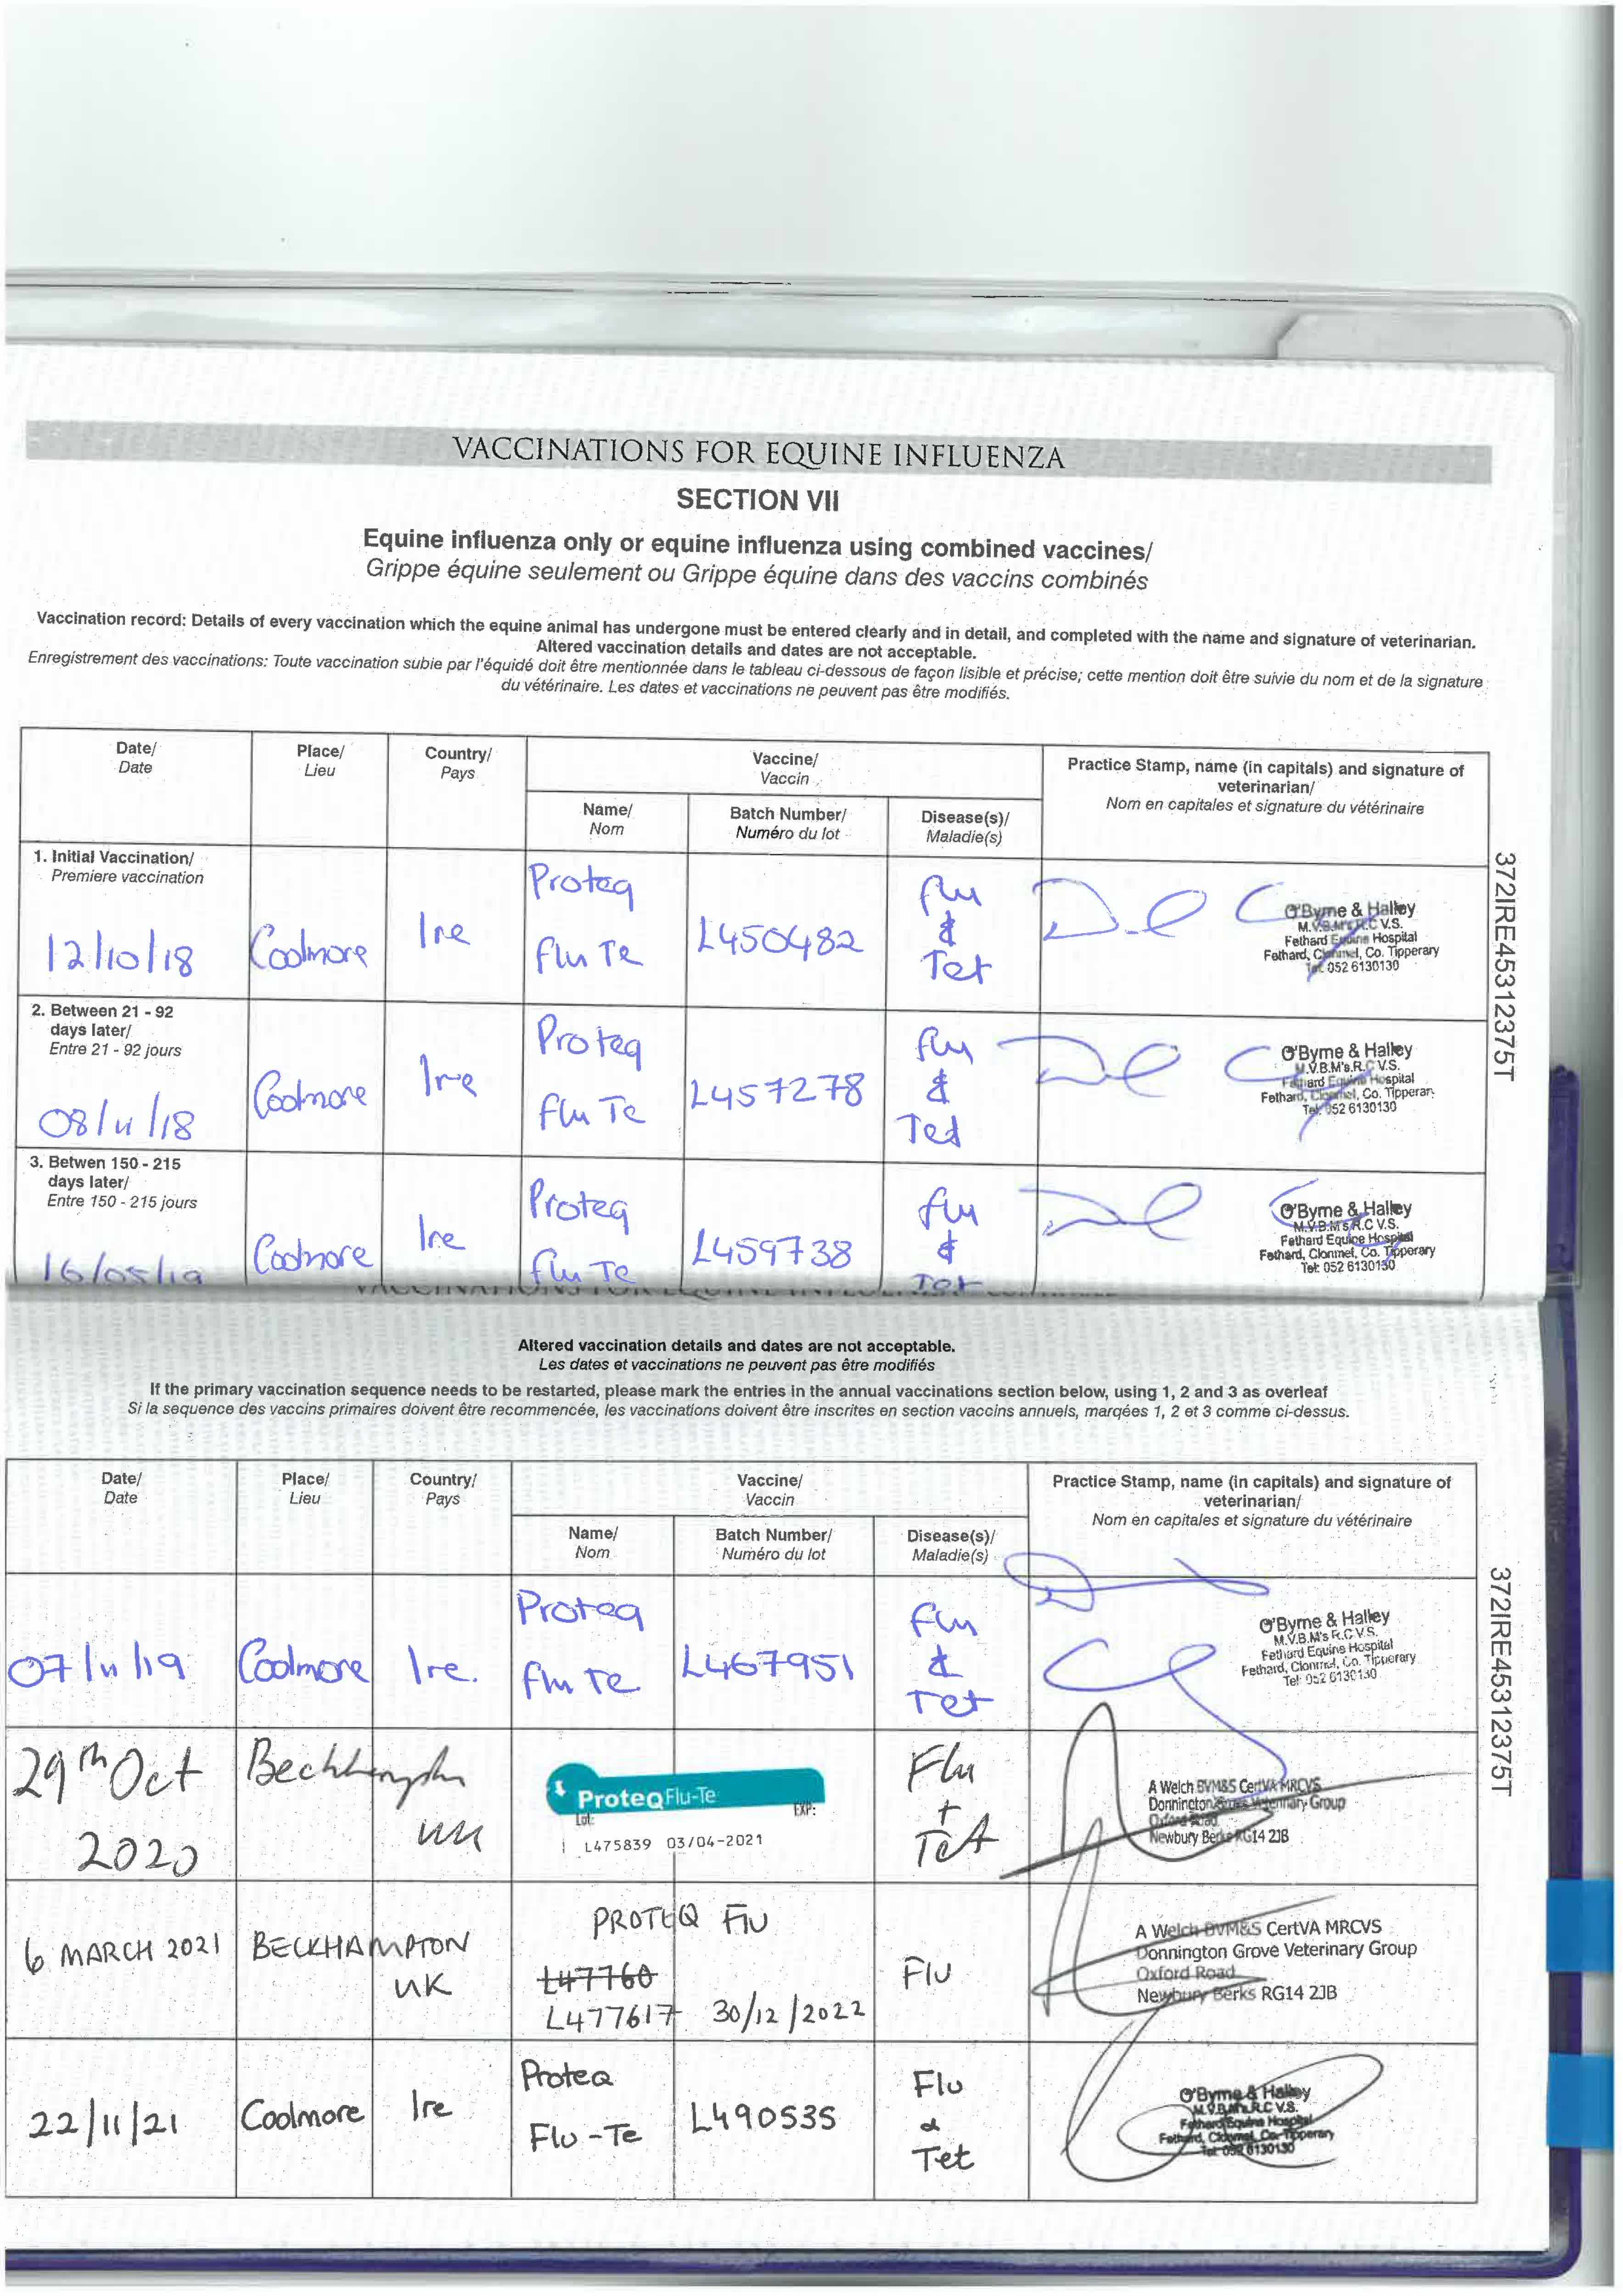 VACCINATIONS FOR EQUINE INFLUENZA
SECTION VII
Equine influenza only or equine influenza using combined vaccines/
Grippe équine seulement ou Grippe équine dans des vaccins combinés
Vaccination record: Details of every vaccination which the equine animal has undergone must be entered clearly and in detail, and completed with the name and signature of veterinarian.
Altered vaccination details and dates are not acceptable.
Enregistrement des vaccinations: Toute vaccination subie par l'équidé doit être mentionnée dans le tableau ci-dessous de façon lisible et précise; cette mention doit être suivie du nom et de la signature
du vétérinaire. Les dates et vaccinations ne peuvent pas être modifiés.
Date/
Date
Place/
Lieu
Country/
Pays
Vaccine/
Vaccin
Name/
Nom
Batch Number/
Numéro du lot
Disease(s)/
Maladie(s)
Practice Stamp, name (in capitals) and signature of
veterinarian/
Nom en capitales et signature du vétérinaire
1. Initial Vaccination/
Premiere vaccination
12/10/18
Coolmore
Ire
Proteq
Flu Te
L450482
flu
&
Tet
O'Byrne & Halley
M.V.B.M's R.C V.S.
Fethard Equine Hospital
Fethard, Clonmel, Co. Tipperary
Tel: 052 6130130
2. Between 21 - 92
days later/
Entre 21 - 92 jours
08/11/18
Coolmore
Ire
Proteq
Flu Te
L457278
flu
&
Tet
O'Byrne & Halley
M.V.B.M's.R.C V.S.
Fethard Equine Hospital
Fethard, Clonmel, Co. Tipperary
Tel: 052 6130130
3. Betwen 150 - 215
days later/
Entre 150 - 215 jours
16/05/19
Coolmore
Ire
Proteq
Flu Te
L459738
flu
&
Tet
O'Byrne & Halley
M.V.B.M's R.C V.S.
Fethard Equine Hospital
Fethard, Clonmel, Co. Tipperary
Tel: 052 6130130
372IRE45312375T
VACCINATIONS FOR EQUINE INFLUENZA
Altered vaccination details and dates are not acceptable.
Les dates et vaccinations ne peuvent pas être modifiés
If the primary vaccination sequence needs to be restarted, please mark the entries in the annual vaccinations section below, using 1, 2 and 3 as overleaf
Si la sequence des vaccins primaires doivent être recommencée, les vaccinations doivent être inscrites en section vaccins annuels, marqées 1, 2 et 3 comme ci-dessus.
Date/
Date
Place/
Lieu
Country/
Pays
Vaccine/
Vaccin
Name/
Nom
Batch Number/
Numéro du lot
Disease(s)/
Maladie(s)
Practice Stamp, name (in capitals) and signature of
veterinarian/
Nom en capitales et signature du vétérinaire
07/11/19
Coolmore
Ire.
Proteq
Flu Te
L467951
Flu
&
Tet
O'Byrne & Halley
M.V.B.M's R.C V.S.
Fethard Equine Hospital
Fethard, Clonmel, Co. Tipperary
Tel: 052 6130130
29th Oct
2020
Beckhampton
UK
ProteqFlu-Te
Lot:
EXP:
L475839 03/04-2021
Flu
+
TeT
A Welch BVM&S CertVA MRCVS
Donnington Grove Veterinary Group
Oxford Road
Newbury Berks RG14 2JB
6 MARCH 2021
BECKHAMPTON
UK
PROTEQ Flu
L47760
L477617 30/12/2022
Flu
A Welch BVM&S CertVA MRCVS
Donnington Grove Veterinary Group
Oxford Road
Newbury Berks RG14 2JB
22/11/21
Coolmore
Ire
Proteq
Flu-Te
L490535
Flu
&
Tet
O'Byrne & Halley
M.V.B.M's R.C V.S.
Fethard Equine Hospital
Fethard, Clonmel, Co. Tipperary
Tel: 052 6130130
372IRE45312375T